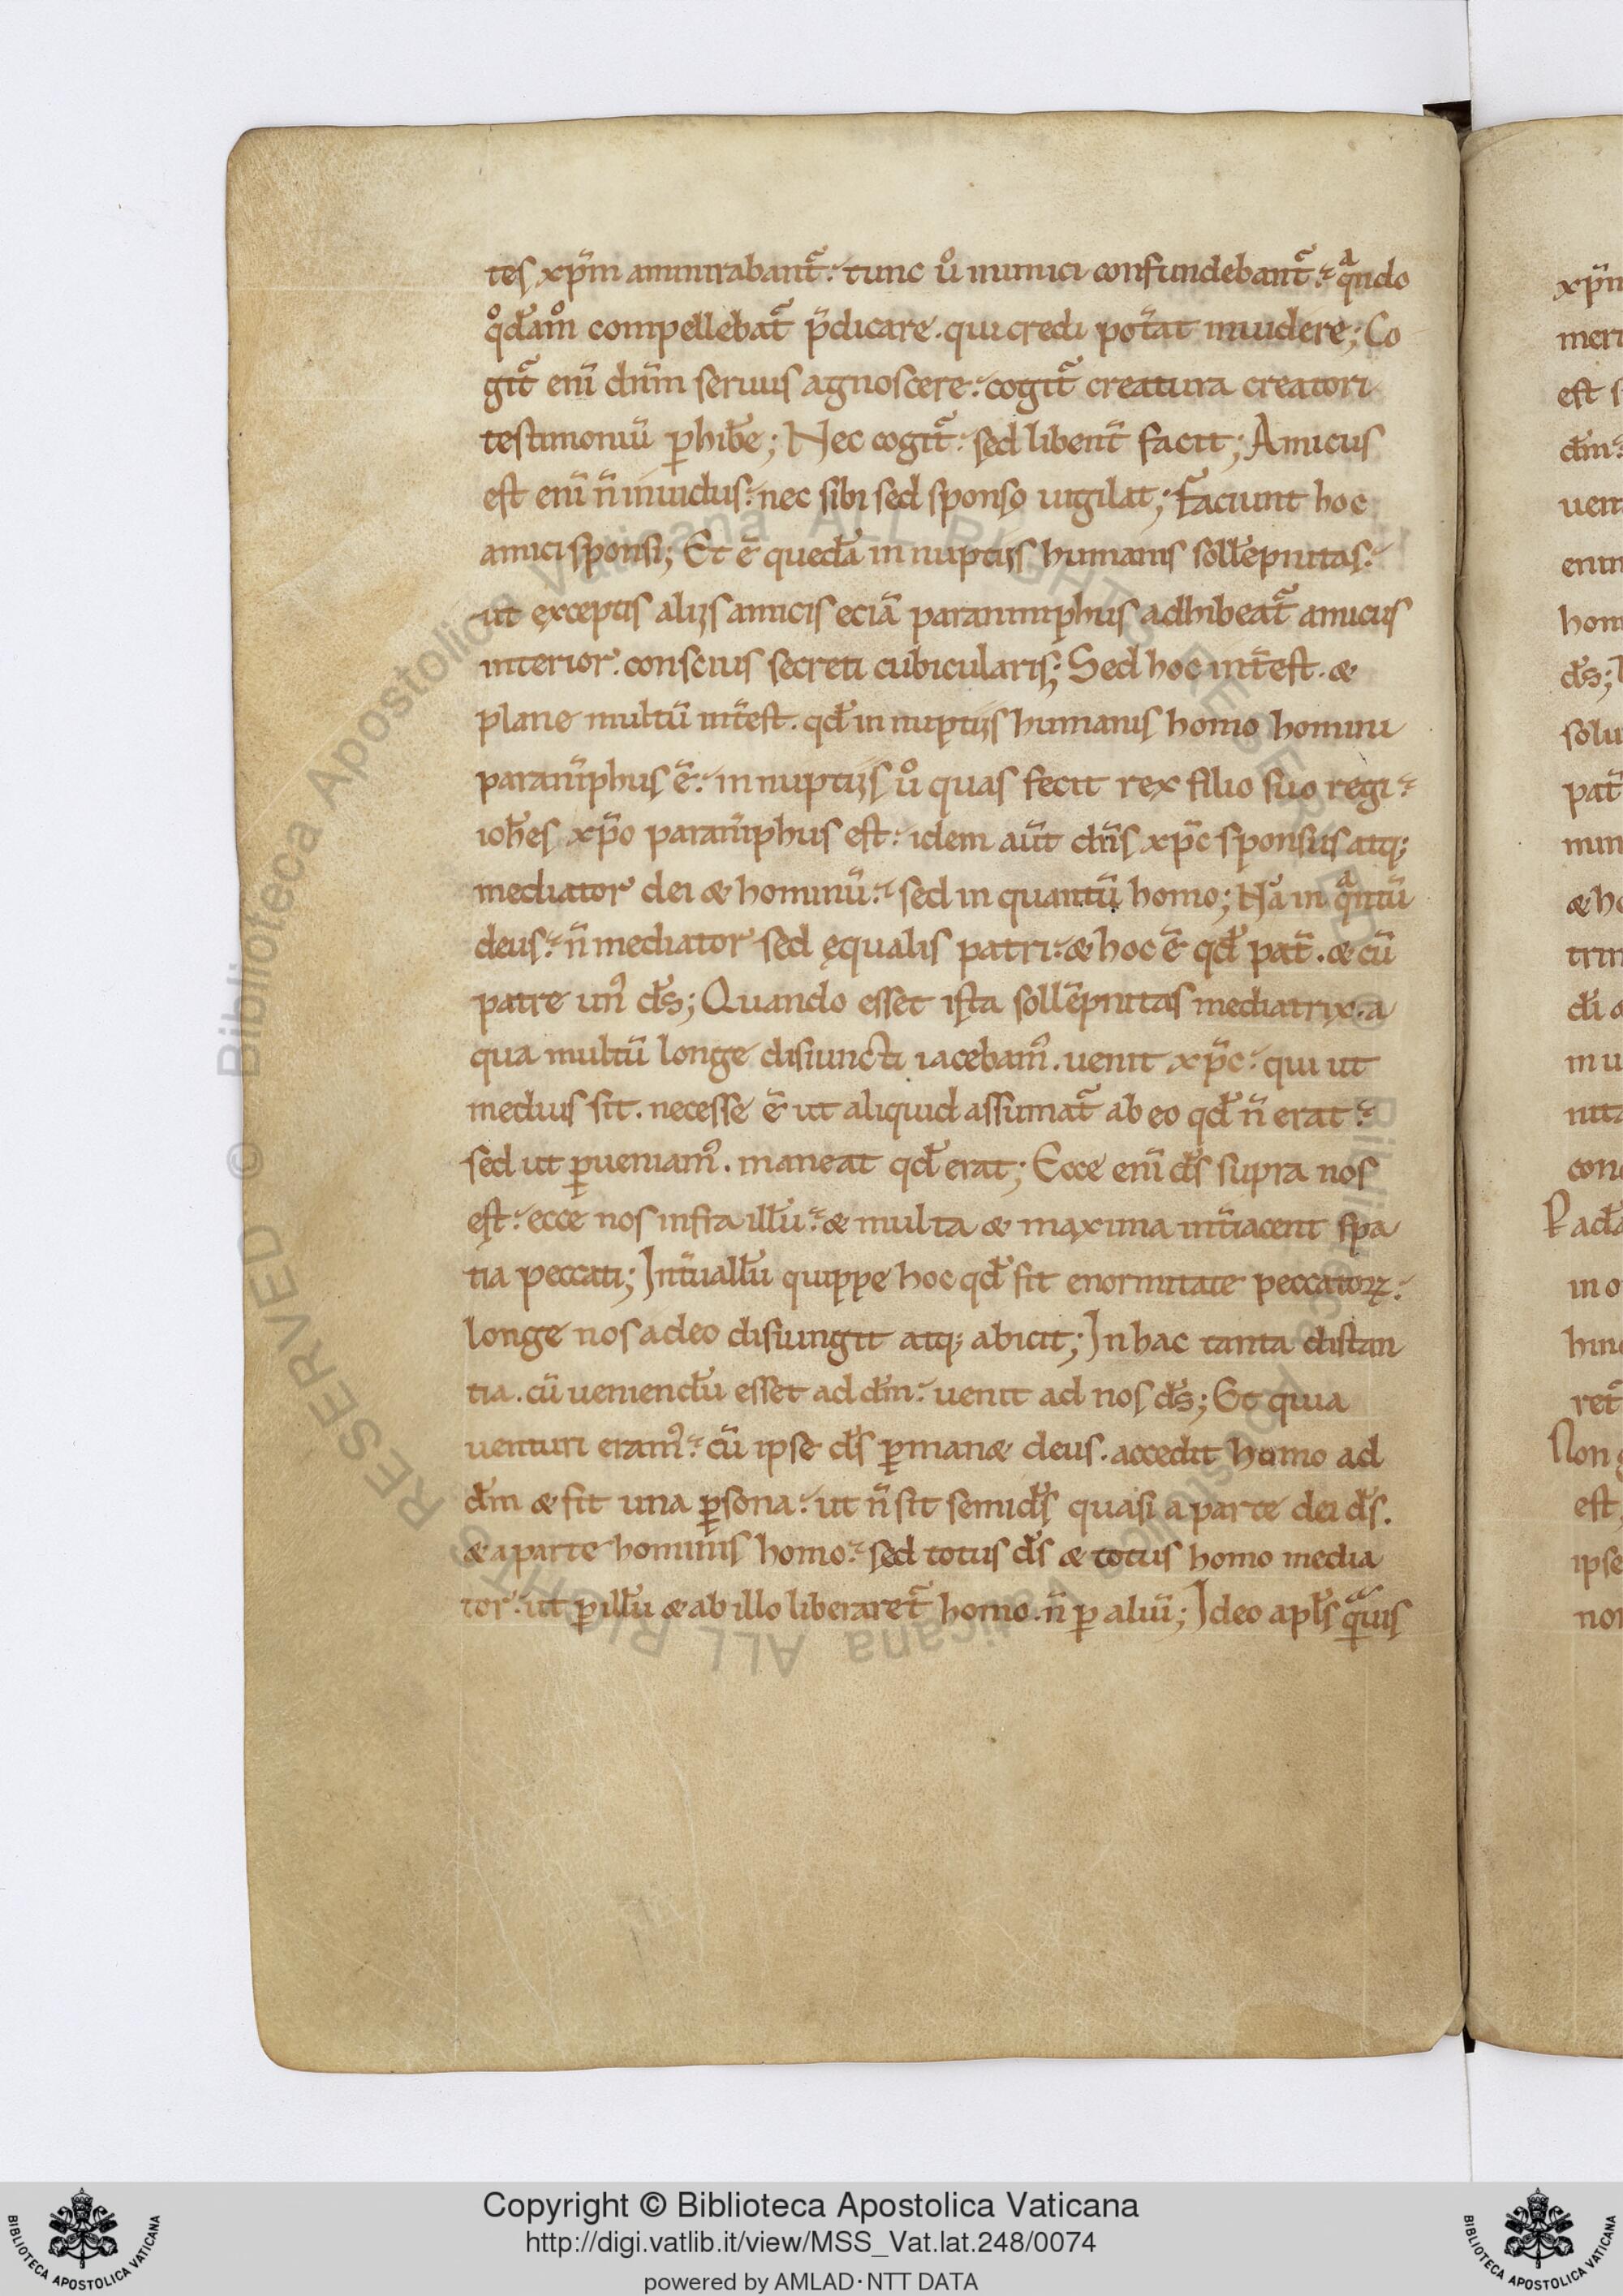 tes xp̄m ammirabant᷑. tunc uͦ inimici confundebant᷑. qͣndo
qͦdāmͦ compellebat᷑ p̄dicare. qui credi pot̄at inuidere; Co
git᷑ eni̅ dn̄m seruus agnoscere. cogit᷑ creatura creatori
testimoniū ꝑhib̄e; Nec cogit᷑. sed libent̄ facit; Amicus
est eni̅ n̄ inuidus. nec sibi sed sponso uigilat; Faciunt hoc
amici sponsi; Et ē quedā in nuptijs humanis sollēpnitas.
ut exceptis alijs amicis eciā paranimphus adhibeat᷑ amicus
interior. conscius secreti cubicularis; Sed hoc int̄est. &
plane multū int̄est. qd̄ in nuptijs humanis homo homini
paranīphus ē. in nuptijs uͦ quas fecit rex filio suo regi.
ioh̄es xp̄o paranīphus est. idem aūt dn̄s xp̄c sponsus atq;
mediator dei & hominū. sed in quantū homo; Nā in qͣntū
deus. n̄ mediator sed ęqualis patri. & hoc ē qd̄ pat̄. & cū
patre unꝰ d̄s; Quando esset ista sollēpnitas mediatrix. a
qua multū longe disiuncti iacebamꝰ. uenit xp̄c. qui ut
medius sit. necesse ē ut aliquid assumat᷑ ab eo qd̄ n̄ erat.
sed ut ꝑueniamꝰ. maneat qd̄ erat; Ecce eni̅ d̄s supra nos
est. ecce nos infra illū. & multa & maxima int̄iacent spa
tia peccati; Int̄uallū quippe hoc qd̄ fit enormitate peccatoꝝ.
longe nos a deo disiungit atq; abicit; In hac tanta distan
tia. cū ueniendū esset ad d̄m. uenit ad nos d̄s; Et quia
uenturi eramꝰ. cū ipse d̄s ꝑman& deus. accedit homo ad
d̄m & fit una ꝑsona. ut n̄ sit semid̄s quasi a parte dei d̄s.
& a parte hominis homo. sed totus d̄s & totus homo media
tor. ut ꝑ illū & ab illo liberaret᷑ homo. n̄ ꝑ aliū; Ideo apl̄s qͣmuis
Copyright © Biblioteca Apostolica Vaticana
http://digi.vatlib.it/view/MSS_Vat.lat.248/0074
powered by AMLAD·NTT DATA